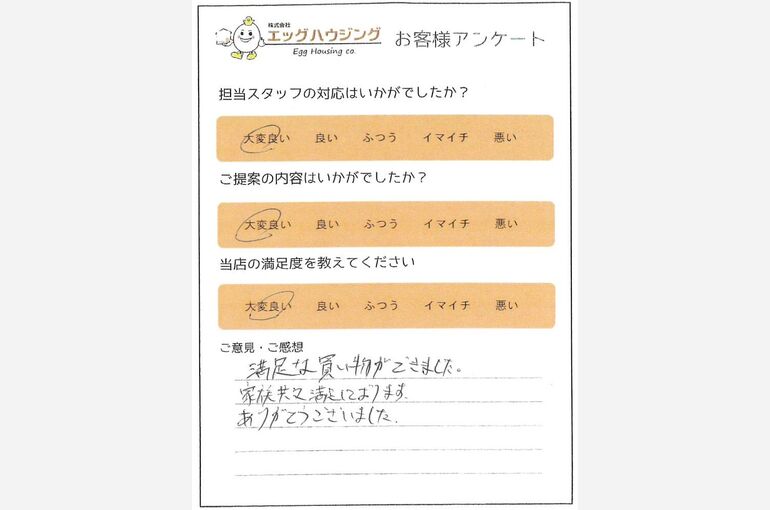 株式会社
エッグハウジング
Egg Housing co.
お客様アンケート
担当スタッフの対応はいかがでしたか？
大変良い 良い ふつう イマイチ 悪い
ご提案の内容はいかがでしたか？
大変良い 良い ふつう イマイチ 悪い
当店の満足度を教えてください
大変良い 良い ふつう イマイチ 悪い
ご意見・ご感想
満足な買い物ができました。
家族共々満足しております。
ありがとうございました.